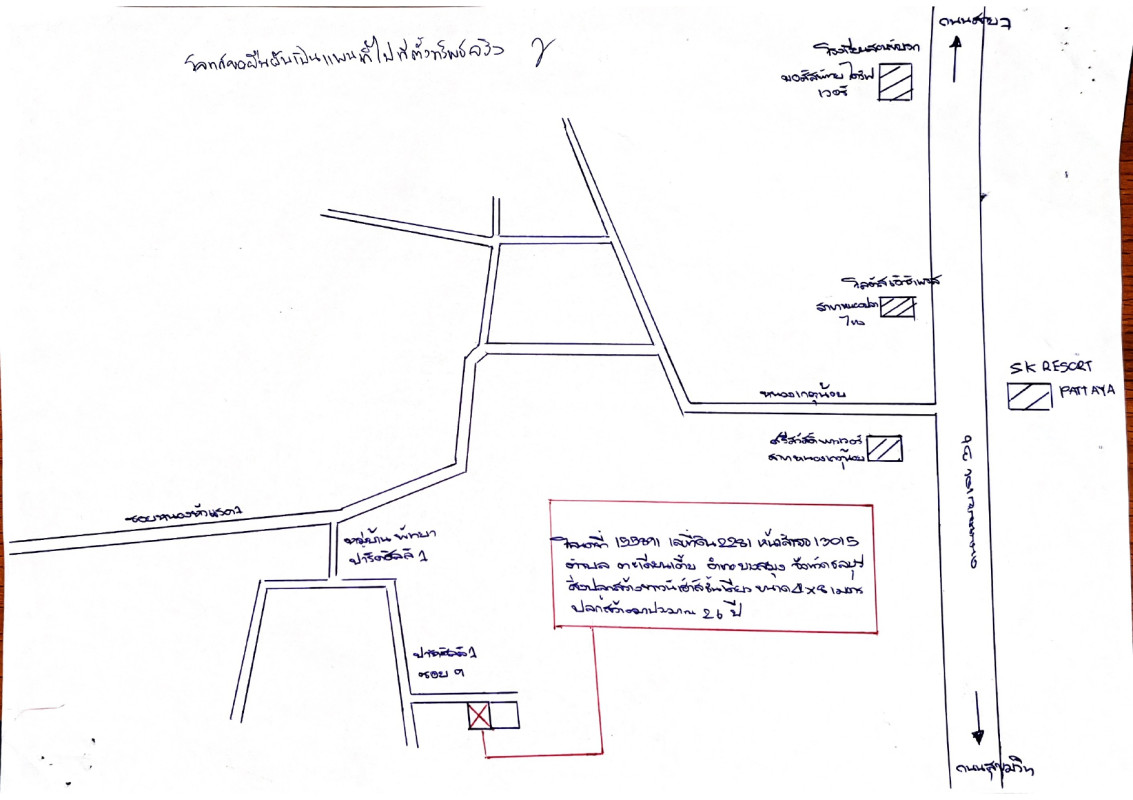 โจทก์ขอยืนยันเป็นแผนที่ไปที่ตั้งทรัพย์จริง
โรงเรียนสอนขับรถ
ไดร์ฟ
เวอร์
ถนนสาย 7
โลตัสเอ็กซ์เพรส
สาขาหนองปลา
ไหล
SK RESORT
PATTAYA
หนองเกตุน้อย
สาขาหนองเกตุน้อย
ซอยหนองหัวแรต 1
หมู่บ้าน พัทยา
ปาร์คฮิลล์ 1
โฉนดที่ เลขที่ดิน 2231 หน้าสำรวจ 13015
ตำบล ตะเคียนเตี้ย อำเภอ บางละมุง จังหวัดชลบุรี
สิ่งปลูกสร้างทาวน์เฮ้าส์ชั้นเดียว ขนาด 4 x 8 เมตร
ปลูกสร้างมาประมาณ 26 ปี
ปาร์คฮิลล์ 1
ซอย 9
ถนนสุขุมวิท